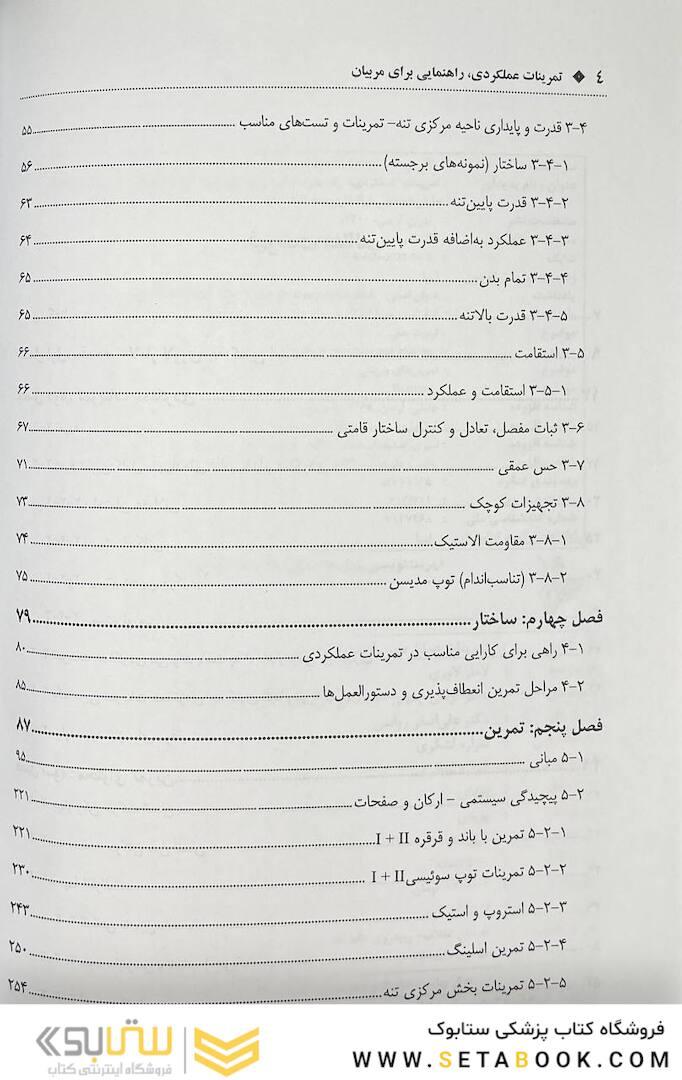 ۴ ◆ تمرینات عملکردی، راهنمایی برای مربیان
۳-۴ قدرت و پایداری ناحیه مرکزی تنه- تمرینات و تست‌های مناسب ........ ۵۵
۳-۴-۱ ساختار (نمونه‌های برجسته) ........ ۵۶
۳-۴-۲ قدرت پایین‌تنه ........ ۶۳
۳-۴-۳ عملکرد به‌اضافه قدرت پایین‌تنه ........ ۶۴
۳-۴-۴ تمام بدن ........ ۶۵
۳-۴-۵ قدرت بالاتنه ........ ۶۵
۳-۵ استقامت ........ ۶۶
۳-۵-۱ استقامت و عملکرد ........ ۶۶
۳-۶ ثبات مفصل، تعادل و کنترل ساختار قامتی ........ ۶۷
۳-۷ حس عمقی ........ ۷۱
۳-۸ تجهیزات کوچک ........ ۷۳
۳-۸-۱ مقاومت الاستیک ........ ۷۴
۳-۸-۲ (تناسب‌اندام) توپ مدیسن ........ ۷۵
فصل چهارم: ساختار ........ ۷۹
۴-۱ راهی برای کارایی مناسب در تمرینات عملکردی ........ ۸۰
۴-۲ مراحل تمرین انعطاف‌پذیری و دستورالعمل‌ها ........ ۸۵
فصل پنجم: تمرین ........ ۸۷
۵-۱ مبانی ........ ۹۵
۵-۲ پیچیدگی سیستمی - ارکان و صفحات ........ ۲۲۱
۵-۲-۱ تمرین با باند و قرقره I + II ........ ۲۲۱
۵-۲-۲ تمرینات توپ سوئیسی I + II ........ ۲۳۰
۵-۲-۳ استروپ و استیک ........ ۲۴۳
۵-۲-۴ تمرین اسلینگ ........ ۲۵۰
۵-۲-۵ تمرینات بخش مرکزی تنه ........ ۲۵۴
فروشگاه کتاب پزشکی ستابوک
WWW.SETABOOK.COM
ستابوک
فروشگاه اینترنتی کتاب